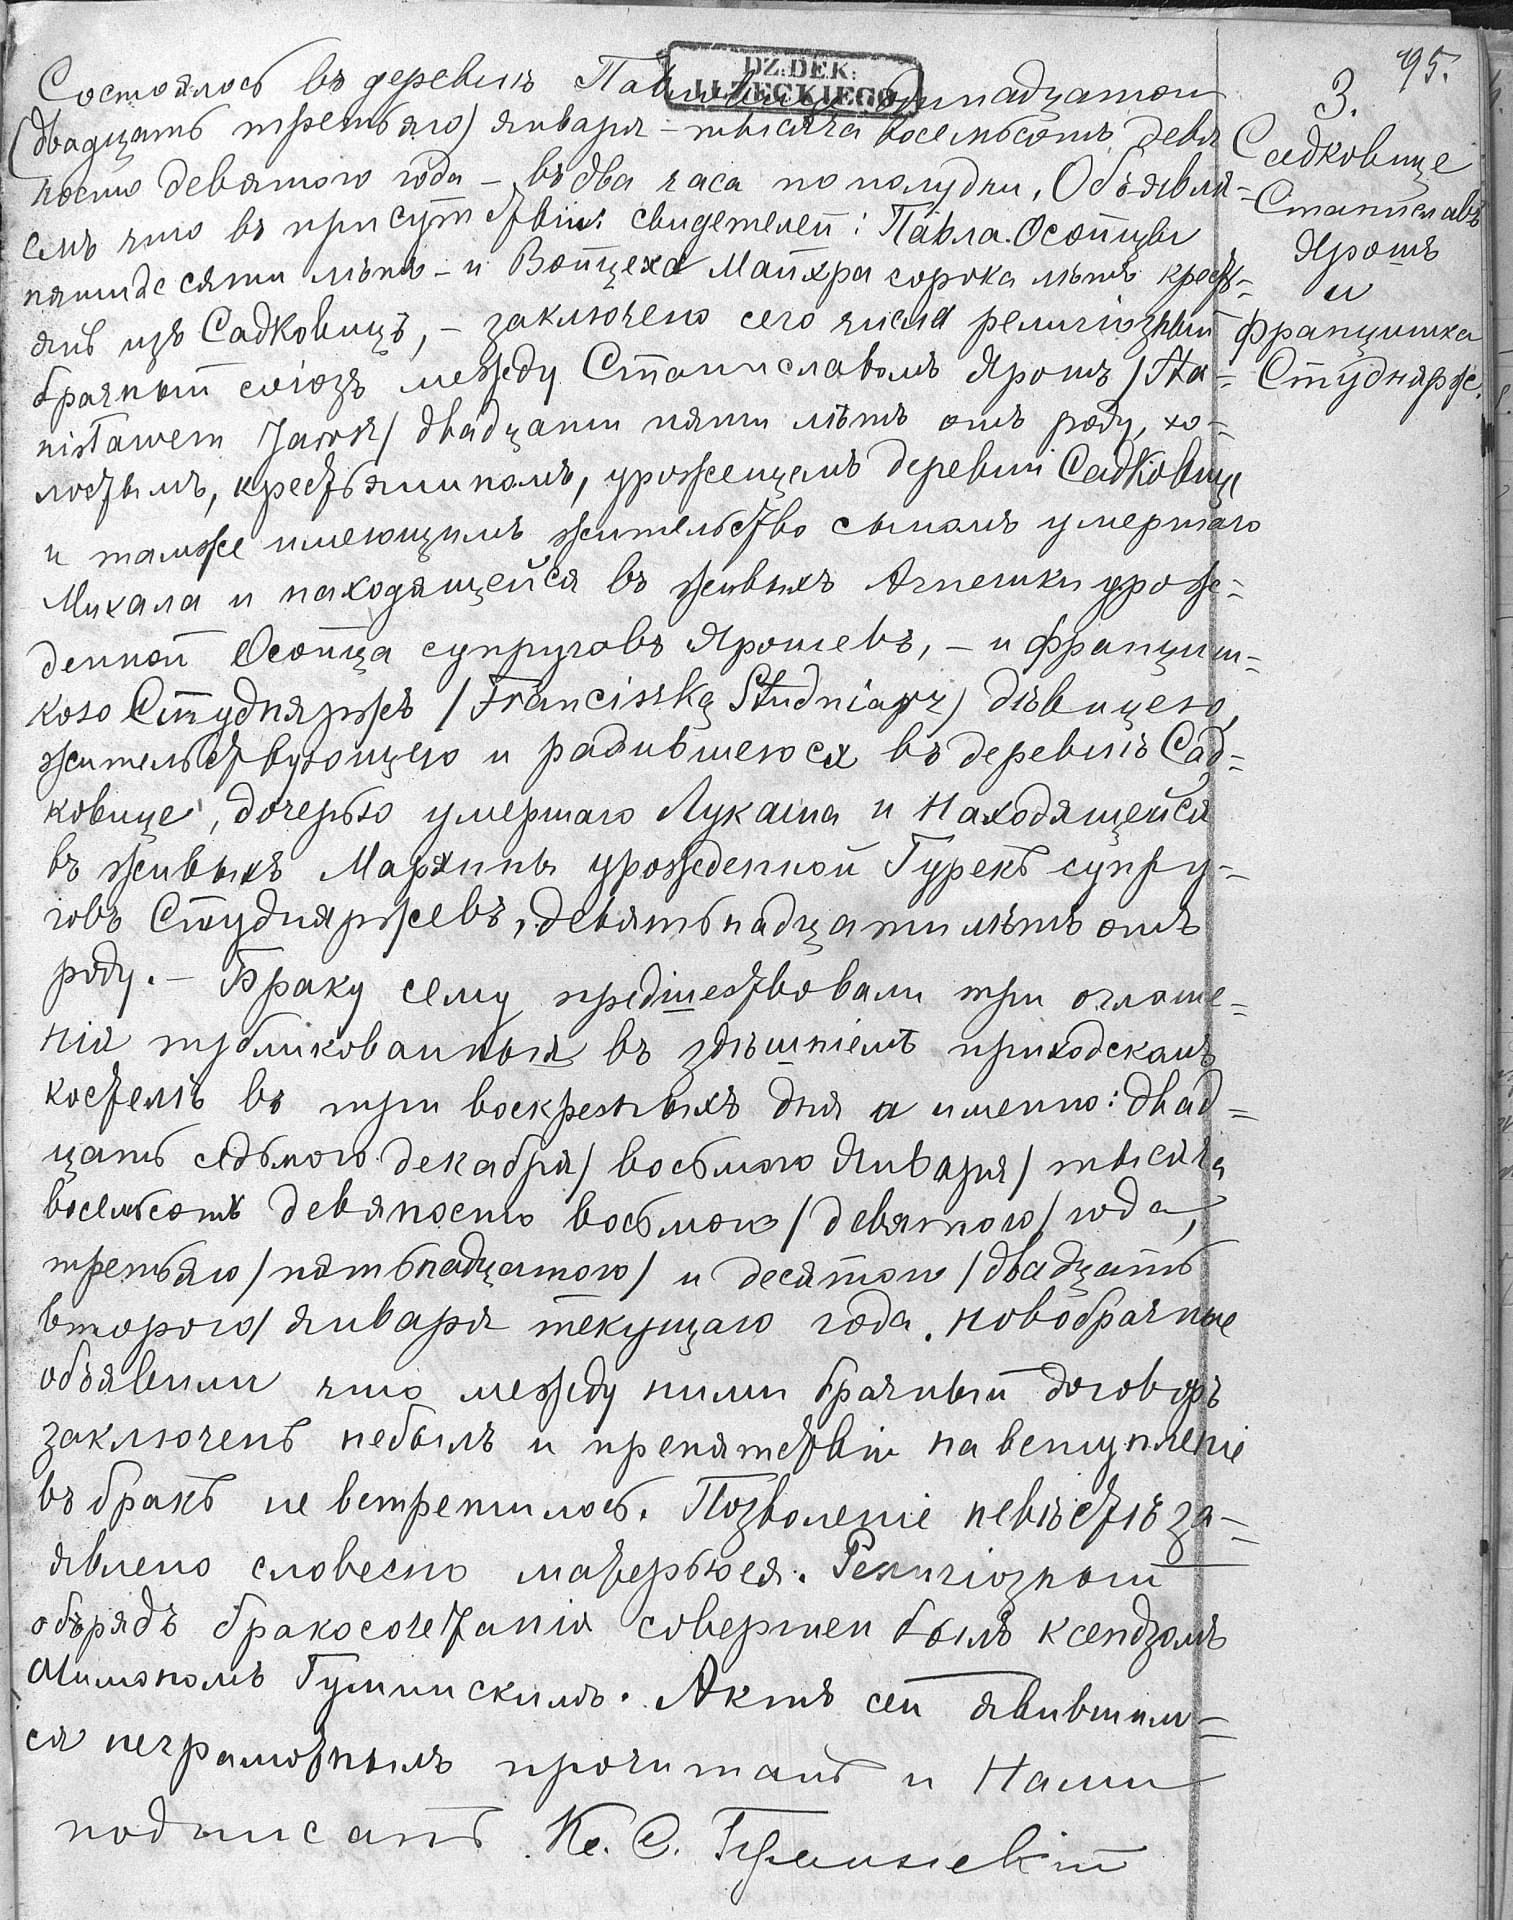 95.
DZ: DEK:
IŁŻECKIEGO
3.
Садковице
Станиславъ
Ярошъ
и
Францишка
Студняржъ.
Состоялось въ деревнѣ одинадцатого
(двадцать третьяго) января – тысяча восемьсотъ девя
носто девятого года – въ два часа по полудни, Объявля-
емъ что въ присутствіи свидетелей: Павла Осойцы
пятидесяти лѣтъ – и Войцеха Майхра сорока лѣтъ кресть-
янъ изъ Садковицъ, – заключено сего числа религіозный
брачный союзъ между Станиславомъ Ярошъ /Sta-
nisławem Jarosz/ двадцати пяти лѣтъ отъ роду, хо-
лостымъ, крестьяниномъ, уроженцемъ деревни Садковице
и тамже имеющимъ жительство сыномъ умершаго
Михала и находящейся въ живыхъ Агнешки урож-
денной Осойца супруговъ Ярошевъ, – и Францишш-
кою Студняржъ /Franciszką Studniarz/ дѣвицею,
жительствующею и радившеюся въ деревнѣ Сад-
ковице, дочерью умершаго Лукаша и Находящейся
въ живыхъ Марянны урожденной Гурекъ супру-
говъ Студняржевъ, девятьнадцати лѣтъ отъ
роду. – Браку сему предшествовали три оглаше-
нія публикованныя въ здѣшнемъ приходскомъ
костелѣ въ три воскресныхъ дня а именно: двад-
цать седьмого декабря /восьмого Января/ тысяча
восемьсотъ девяносто восьмого /девятого/ года,
третьяго /пятьнадцатого/ и десятого /двадцать
второго/ января текущаго года. Новобрачные
объявили что между ними брачный договоръ
заключенъ небылъ и препятствій на вступленіе
въ бракъ не встретилось. Позволеніе невѣстѣ за-
явлено словесно матерьюея. Религіозный
обърядъ бракосочетанія совершен былъ ксендзомъ
Актъ сей явившим-
ся неграмотнымъ прочитанъ и Нами
подписанъ Кс. С.